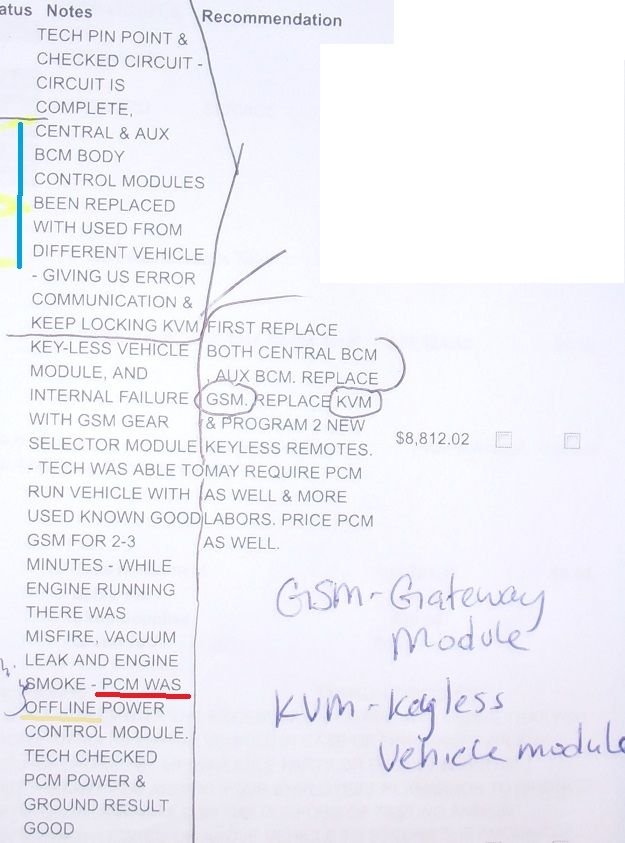 atus Notes
Recommendation
TECH PIN POINT &
CHECKED CIRCUIT -
CIRCUIT IS
COMPLETE,
CENTRAL & AUX
BCM BODY
CONTROL MODULES
BEEN REPLACED
WITH USED FROM
DIFFERENT VEHICLE
- GIVING US ERROR
COMMUNICATION &
KEEP LOCKING KVM
KEY-LESS VEHICLE
MODULE, AND
INTERNAL FAILURE
WITH GSM GEAR
SELECTOR MODULE
- TECH WAS ABLE TO
RUN VEHICLE WITH
USED KNOWN GOOD
GSM FOR 2-3
MINUTES - WHILE
ENGINE RUNNING
THERE WAS
MISFIRE, VACUUM
LEAK AND ENGINE
SMOKE - PCM WAS
OFFLINE POWER
CONTROL MODULE.
TECH CHECKED
PCM POWER &
GROUND RESULT
GOOD
FIRST REPLACE
BOTH CENTRAL BCM
, AUX BCM. REPLACE
GSM. REPLACE KVM
& PROGRAM 2 NEW
KEYLESS REMOTES.
MAY REQUIRE PCM
AS WELL & MORE
LABORS. PRICE PCM
AS WELL.
$8,812.02
GSM - Gateway
Module
KVM - Keyless
Vehicle module